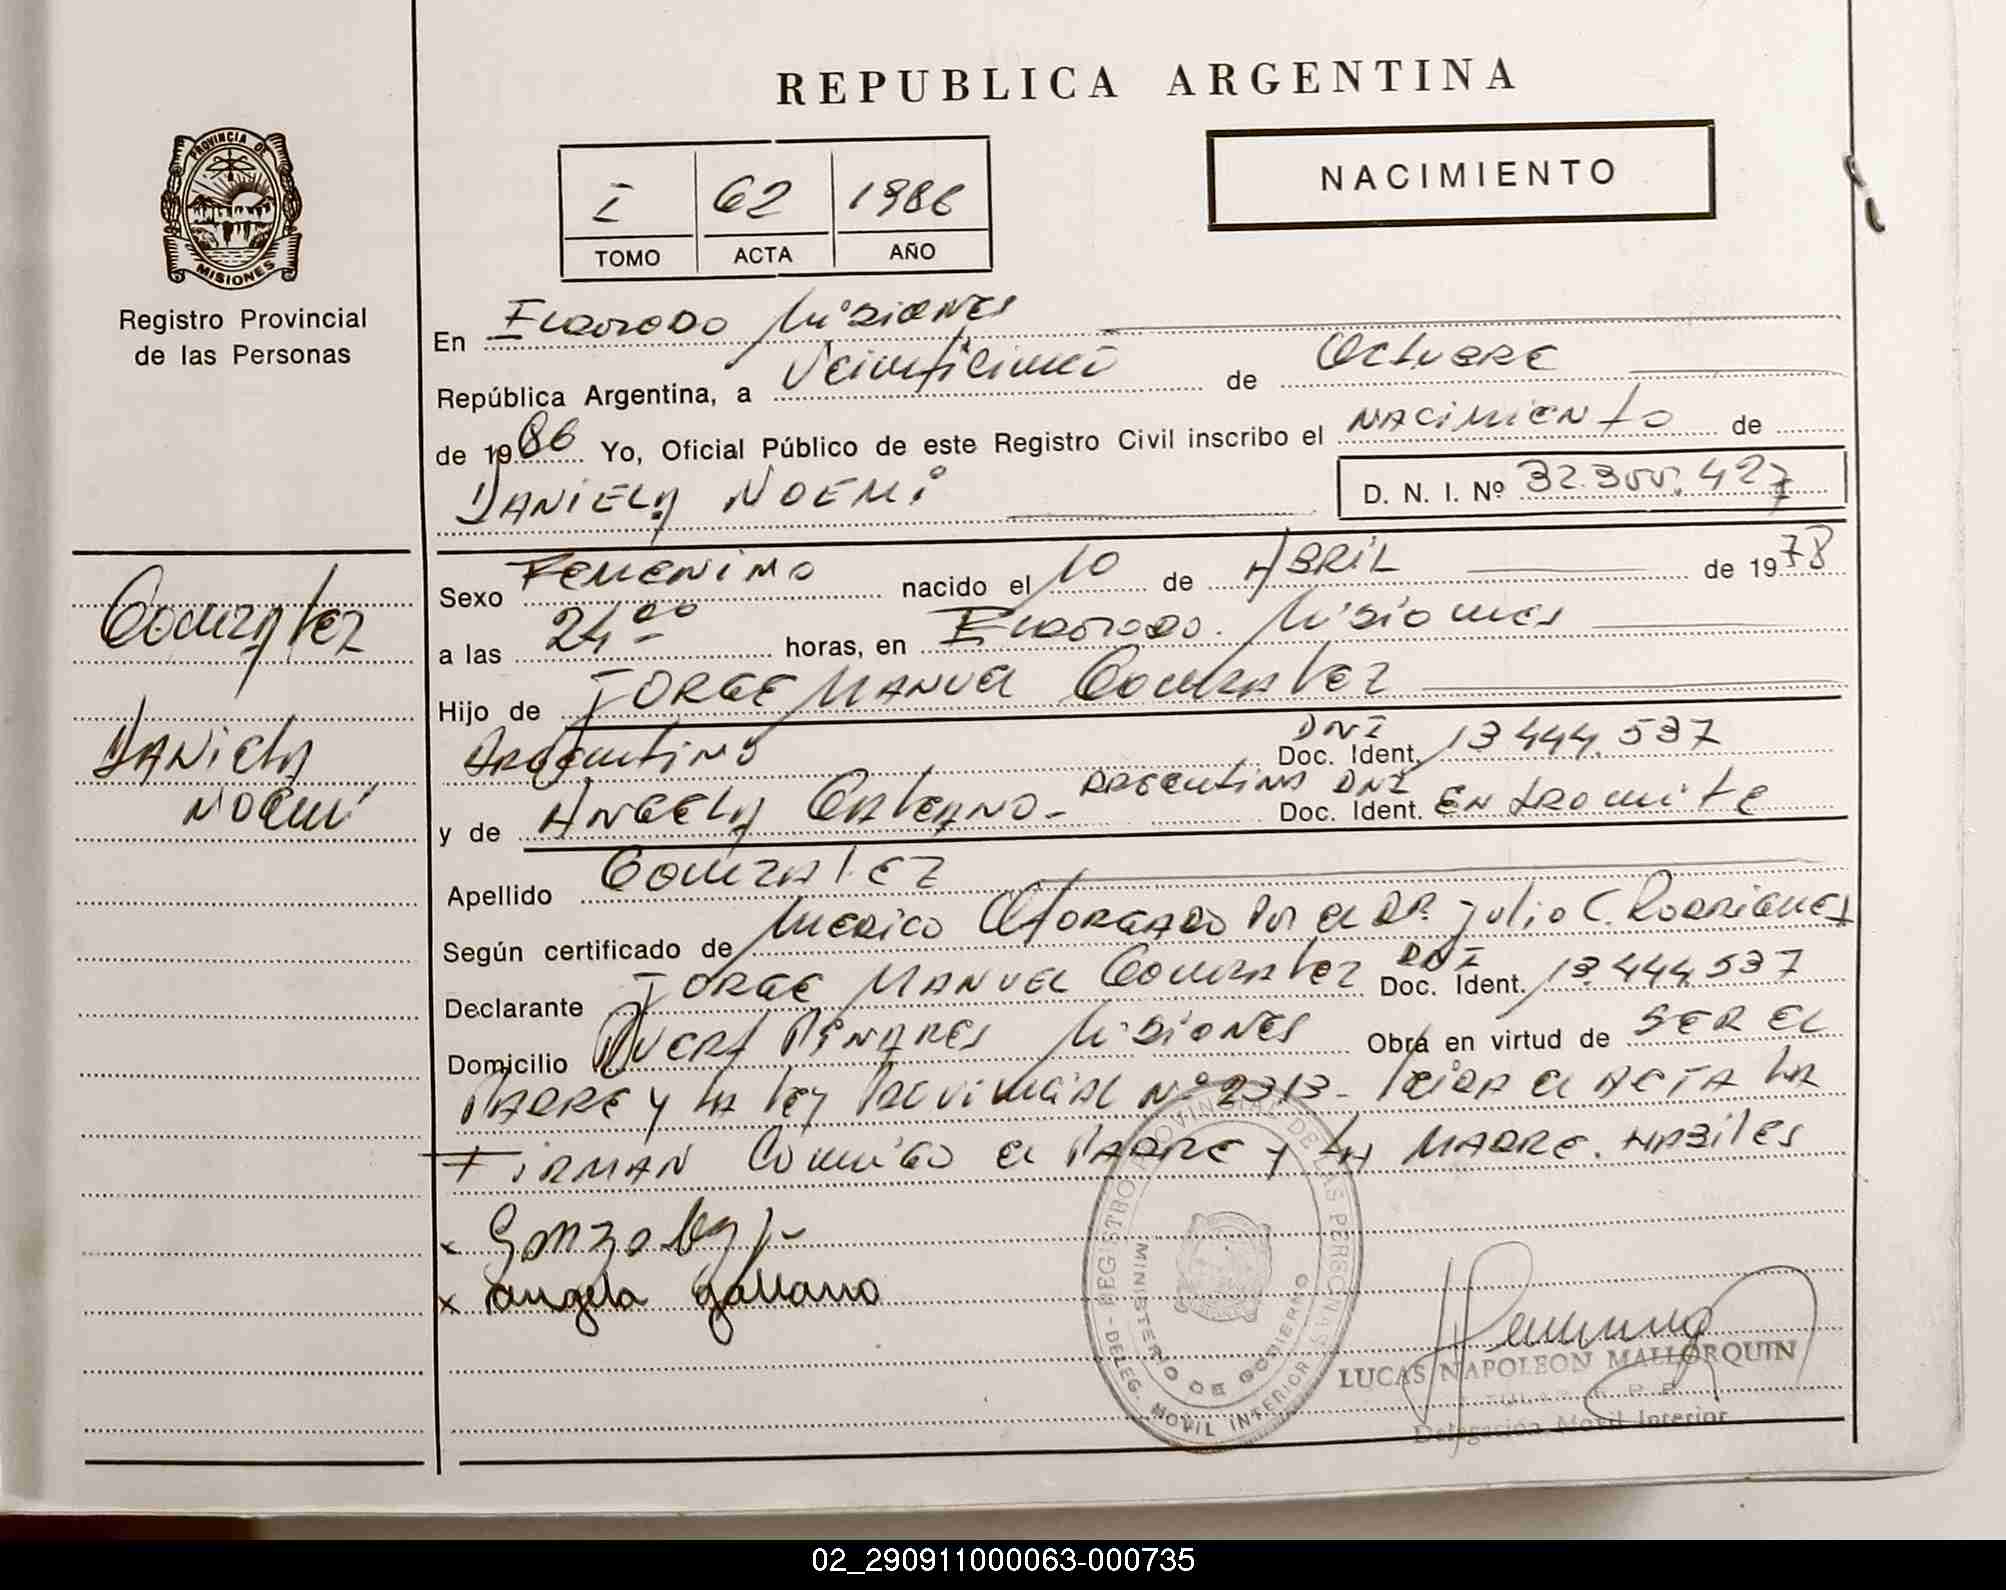 REPUBLICA ARGENTINA
NACIMIENTO
I 62 1986
TOMO ACTA AÑO
PROVINCIA DE
MISIONES
Registro Provincial
de las Personas
En Eldorado Misiones
República Argentina, a Veinticinco de Octubre
de 1986 Yo, Oficial Público de este Registro Civil inscribo el NACIMIENTO de
DANIELA NOEMI D. N. I. Nº 32.355.427
Gonzalez
DANIELA
NOEMI
Sexo FEMENINO nacido el 10 de ABRIL de 1978
a las 24 00 horas, en Eldorado. Misiones
Hijo de JORGE MANUEL Gonzalez
Argentino DNI Doc. Ident. 13.444.537
y de ANGELA GALEANO - ARGENTINA DNI Doc. Ident. EN tramite
Apellido GONZALEZ
Según certificado de MEDICO OTORGADO POR el DR. Julio C. RODRIGUES
Declarante JORGE MANUEL Gonzalez DNI Doc. Ident. 13.444.537
Domicilio PUERTO PINARES MISIONES Obra en virtud de SER EL
PADRE y LA Ley PROVINCIAL Nº 2313 - leida el ACTA LA
FIRMAN Conmigo el PADRE y LA MADRE. HABILES
x Gonzalez J
x angela galeano
REGISTRO PROVINCIAL DE LAS PERSONAS - DELEG. MOVIL INTERIOR
MINISTERIO DE GOBIERNO
LUCAS NAPOLEON MALLORQUIN
TITULAR R. P. P.
Delegación Movil Interior
02_290911000063-000735